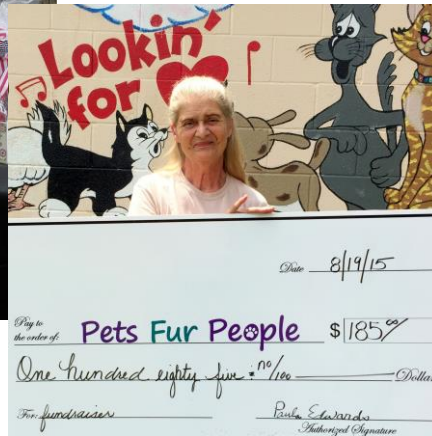 Lookin'
for
Date 8/19/15
Pay to
the order of: Pets Fur People $ 185 00/
One hundred eighty five & no/100 Dolla
For: fundraiser Paula Edwards
Authorized Signature